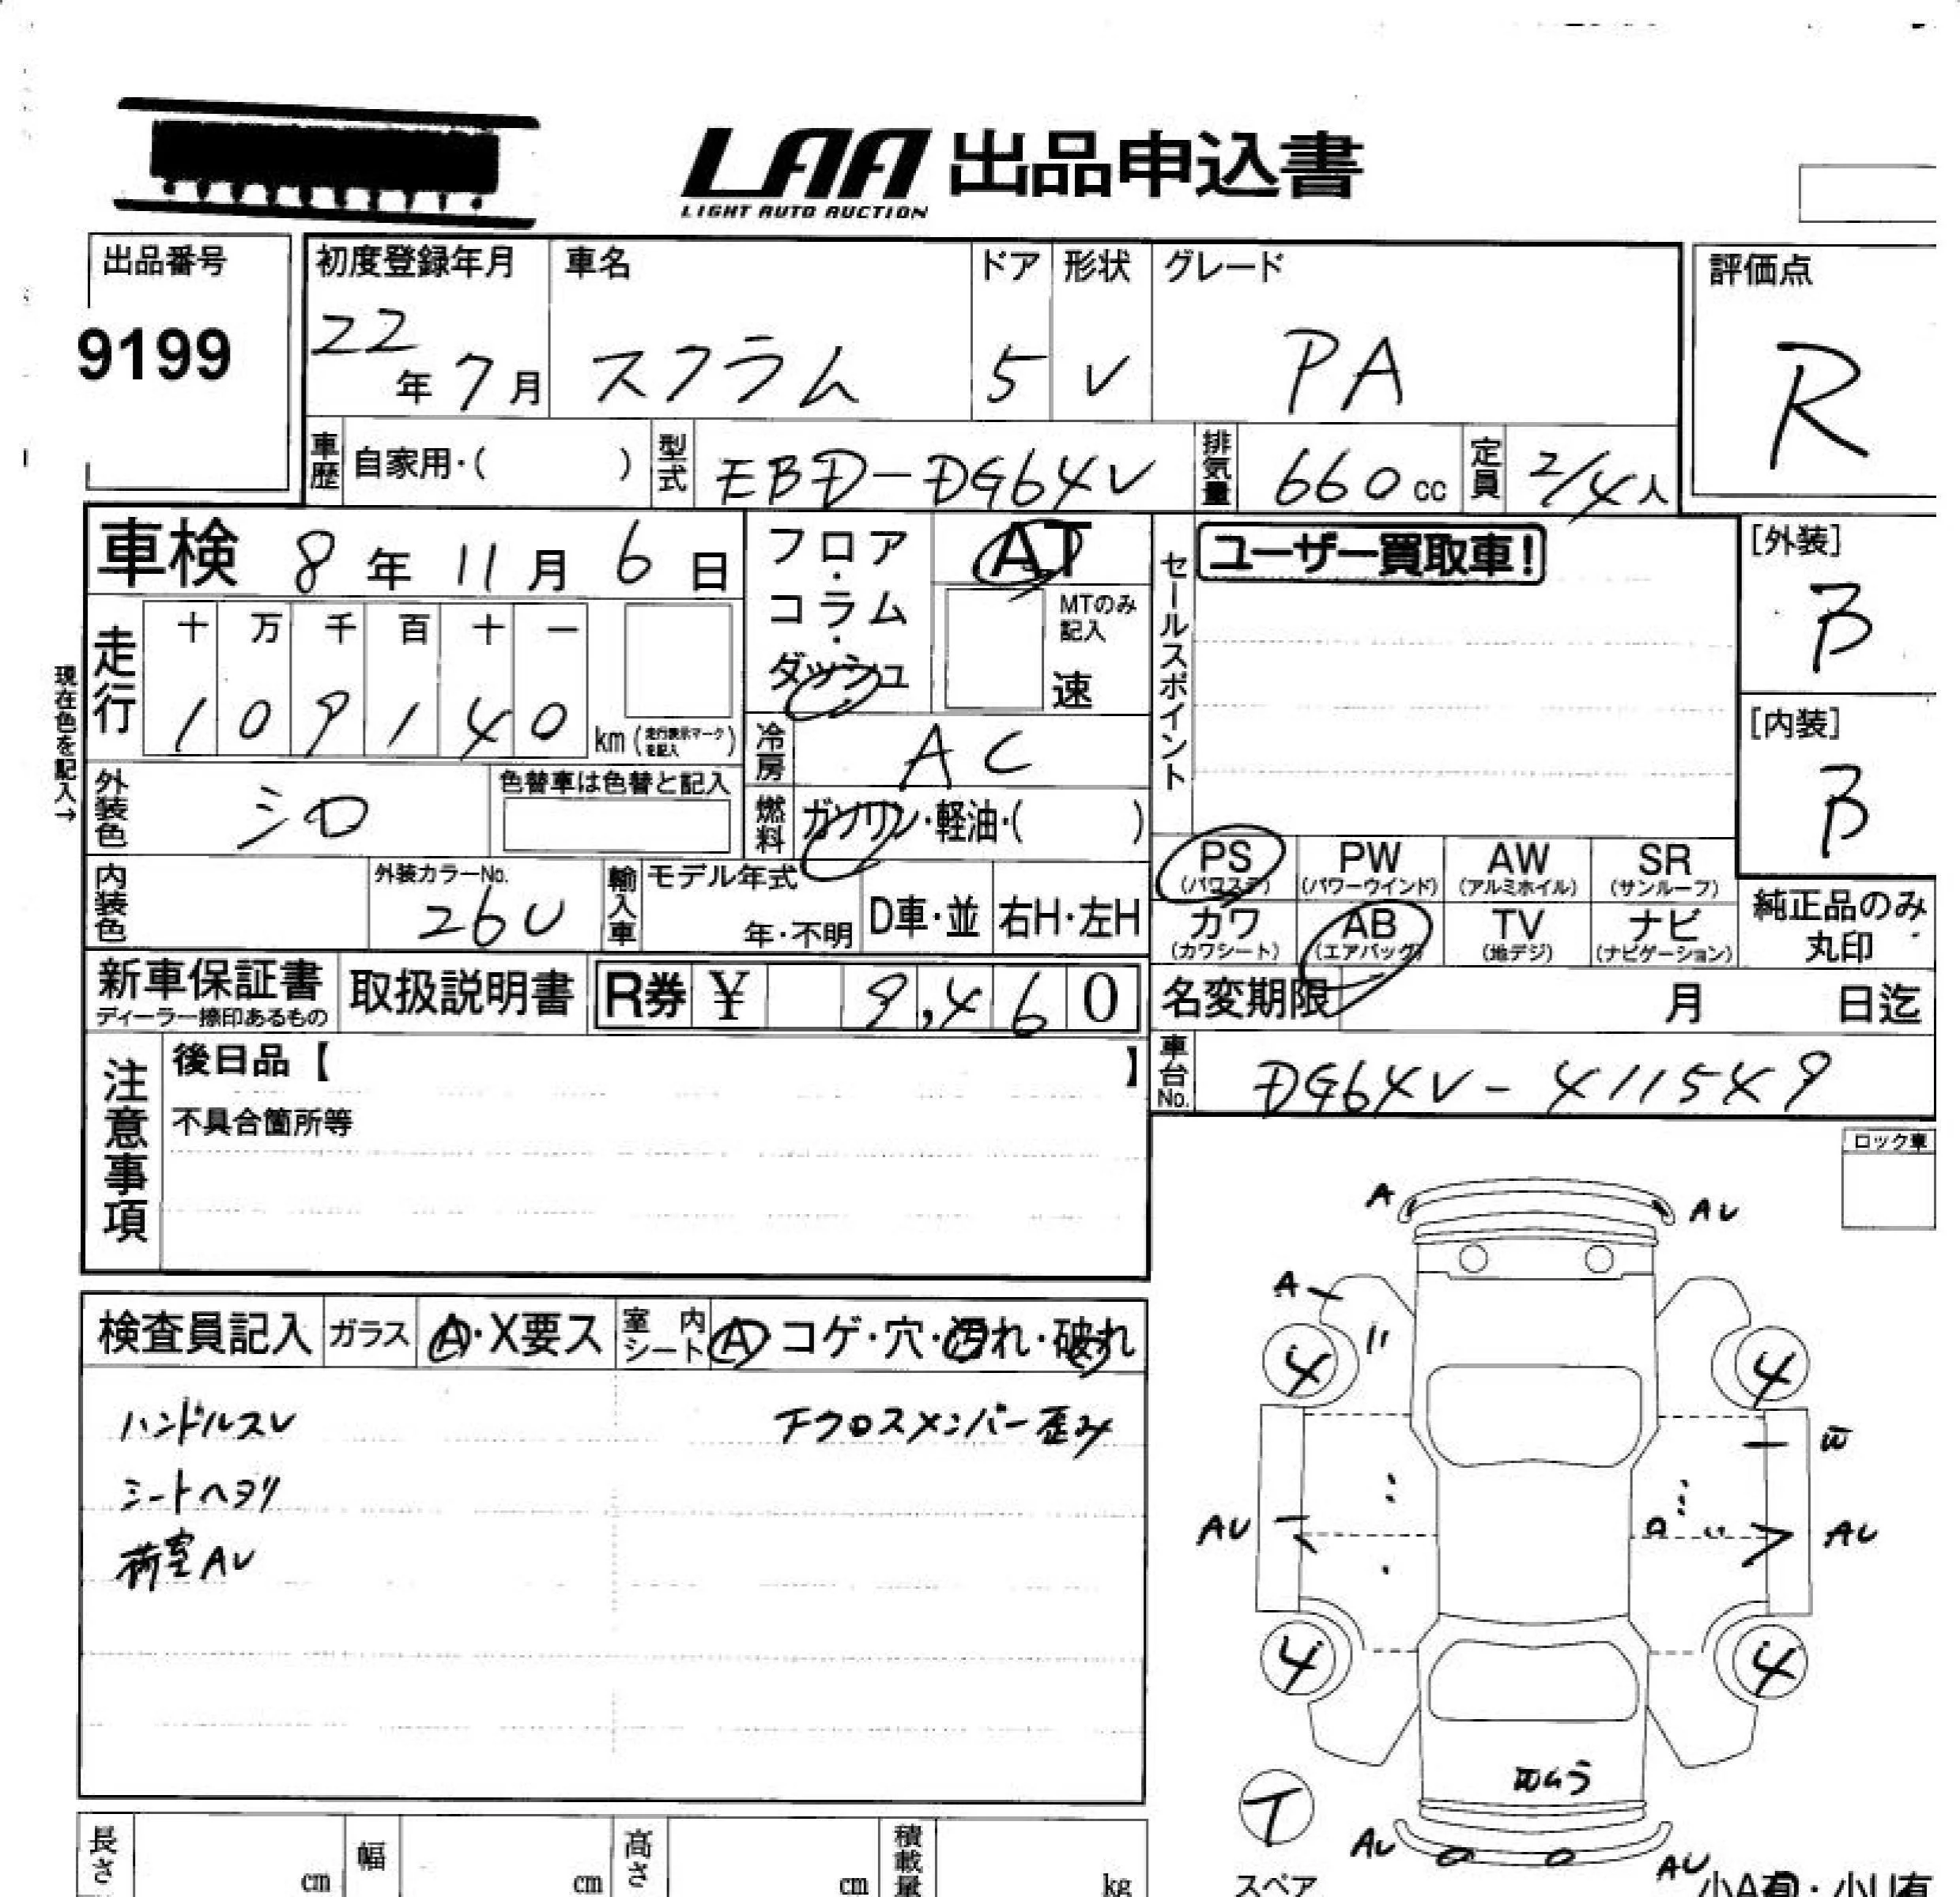 LAA 出品申込書
LIGHT AUTO AUCTION
出品番号
9199
初度登録年月
22年7月
車名
スクラム
ドア
5
形状
V
グレード
PA
評価点
R
車歴 自家用・( )
型式 EBD-DG64V
排気量 660cc
定員 2/4人
車検 8年11月6日
フロア・コラム・ダッシュ
AT
MTのみ記入
速
セールスポイント
ユーザー買取車!
[外装]
B
[内装]
B
現在色を記入→
走行
十 万 千 百 十 一
1 0 9 1 4 0 km (走行表示マークを記入)
冷房 AC
燃料 ガソリン・軽油・( )
外装色 シロ
色替車は色替と記入
内装色
外装カラーNo.
26U
輸入車
モデル年式
年・不明
D車・並
右H・左H
PS (パワステ)
PW (パワーウインド)
AW (アルミホイル)
SR (サンルーフ)
カワ (カワシート)
AB (エアバッグ)
TV (地デジ)
ナビ (ナビゲーション)
純正品のみ丸印
新車保証書
ディーラー捺印あるもの
取扱説明書
R券 ¥ 9,460
名変期限 月 日迄
車台No. DG64V-411549
注意事項
後日品【 】
不具合箇所等
ロック車
検査員記入 ガラス A・X要ス 室内シート A コゲ・穴・汚れ・破れ
ハンドルスレ
シートヘタリ
荷室AU
下クロスメンバー歪み
A
AU
A
4
4
AU
AU
4
4
T
スペア
AU
AU
小A有・小U有
長さ cm
幅 cm
高さ cm
積載量 kg